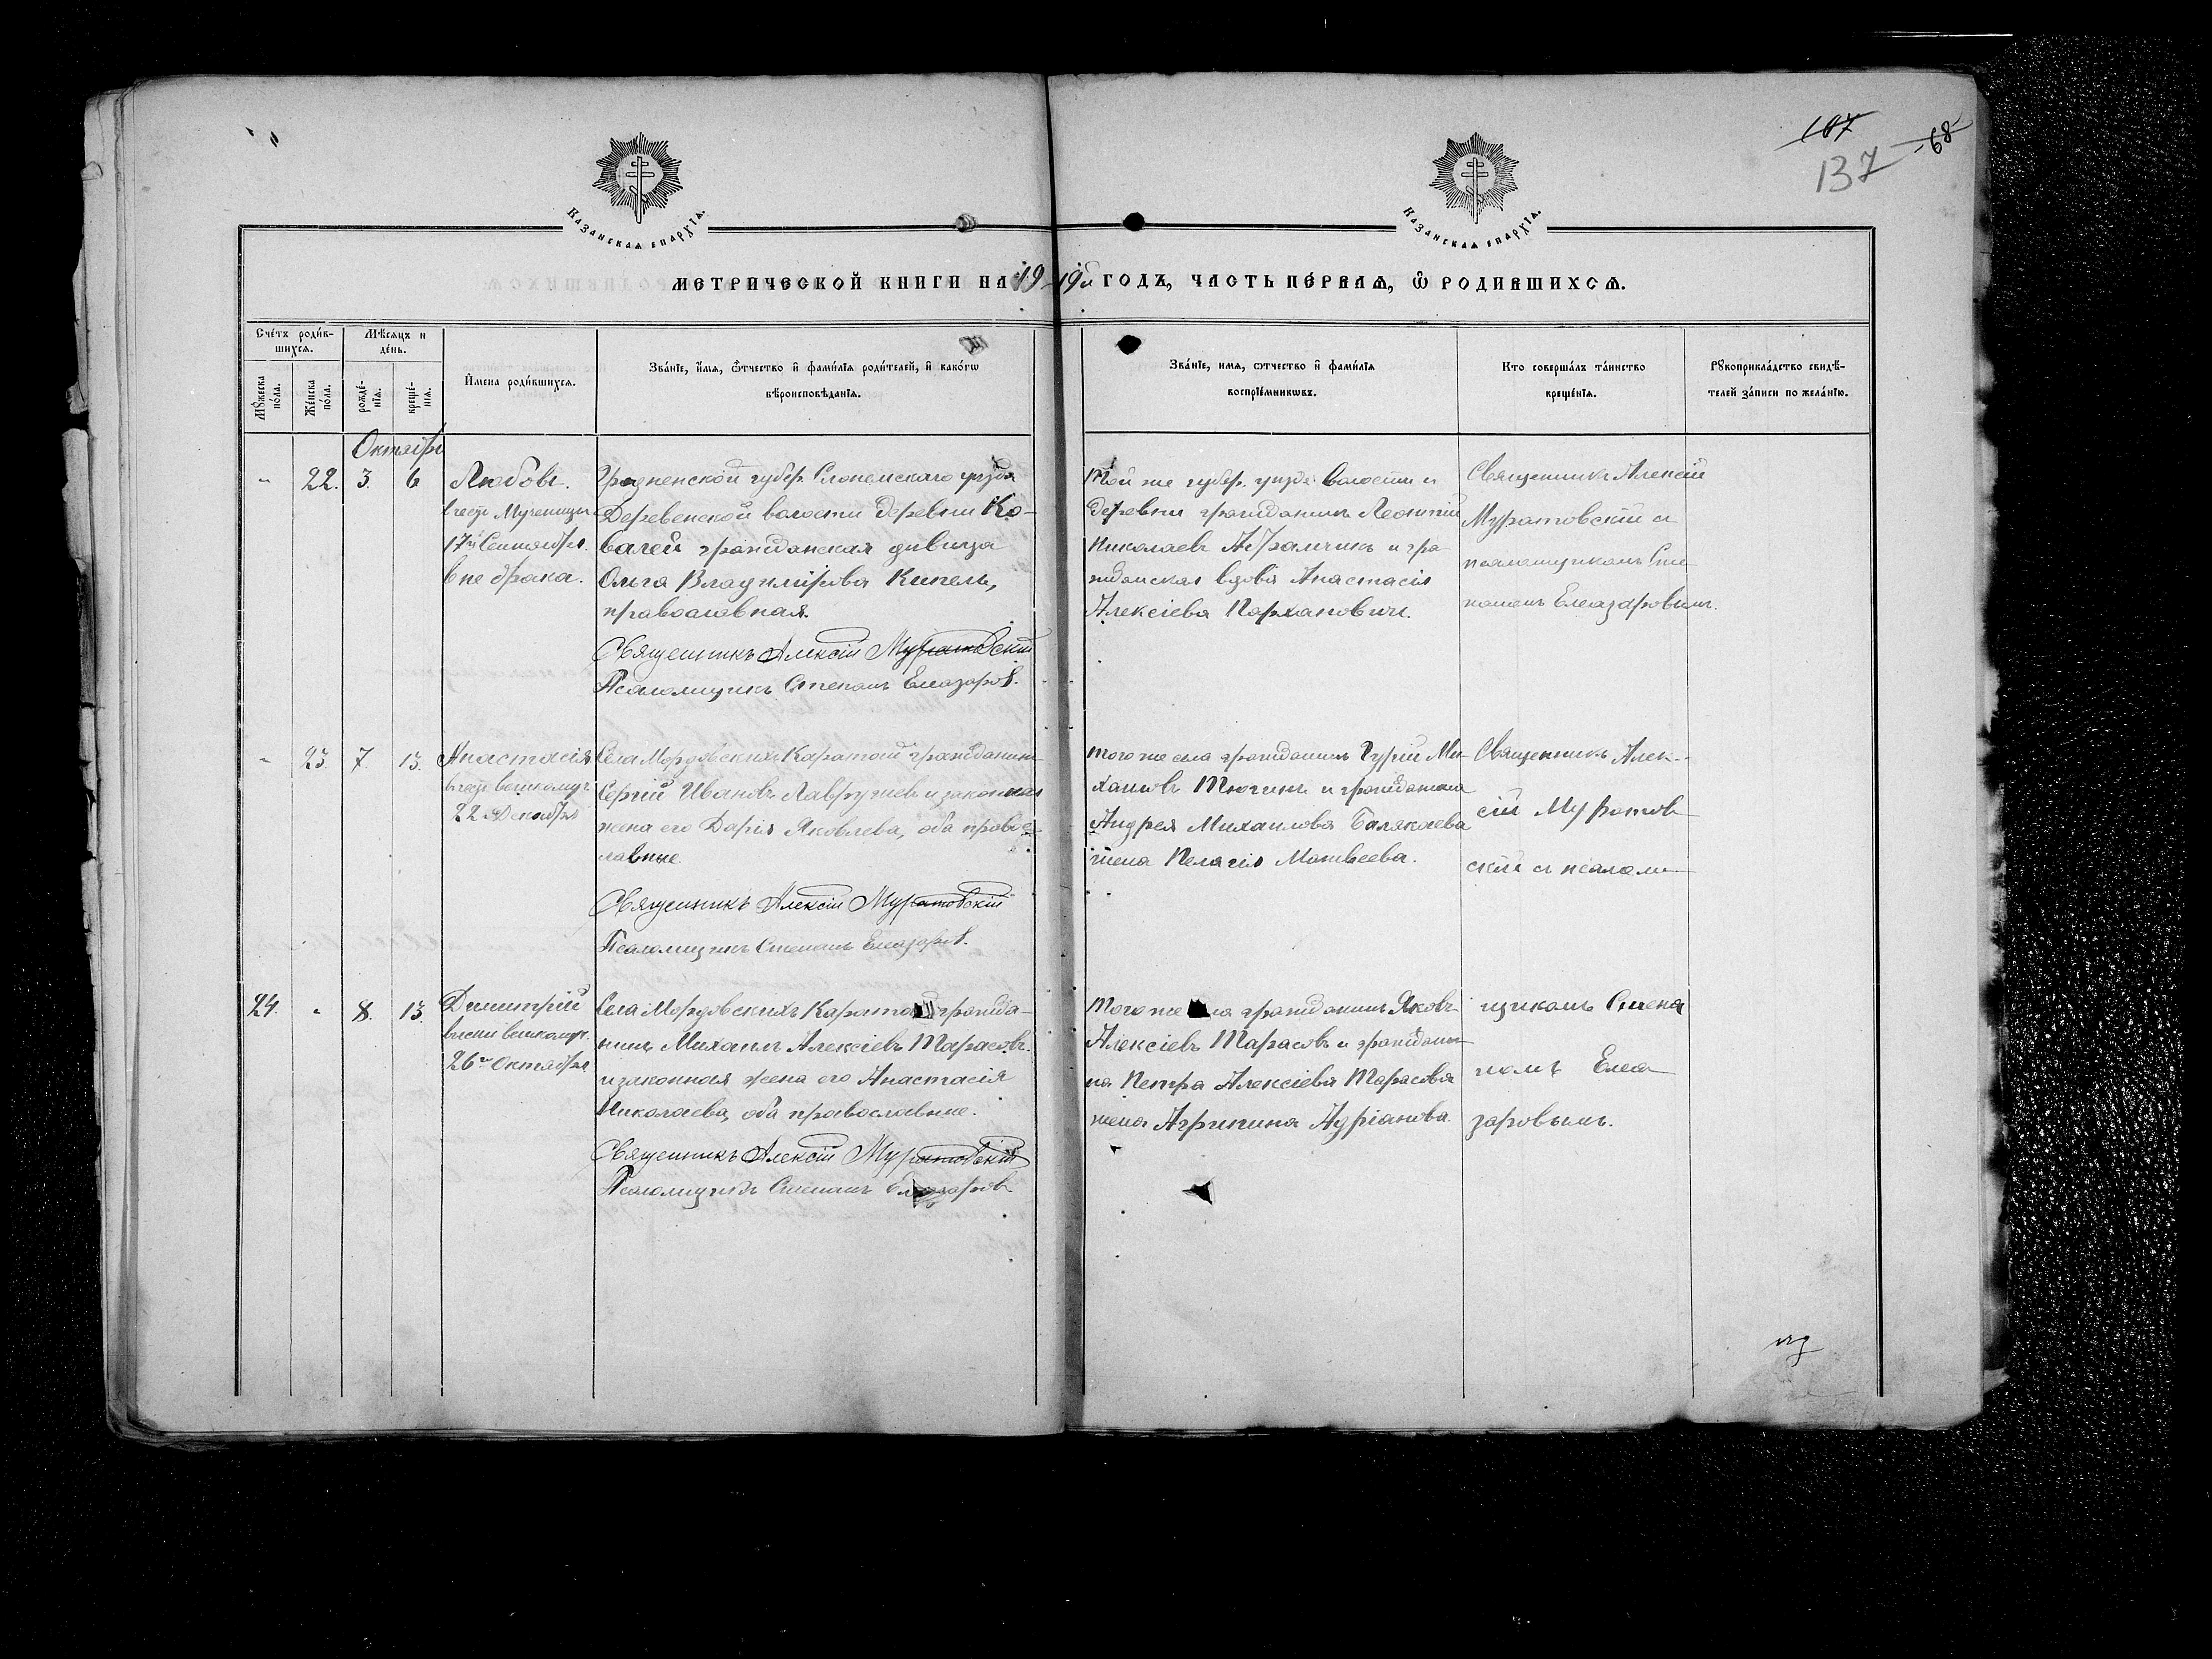 107
137
68
КАЗАНСКАѦ ЕПАРХЇѦ.
КАЗАНСКАѦ ЕПАРХЇѦ.
МЕТРИЧЕСКОЙ КНИГИ НА 1919й ГОДЪ, ЧАСТЬ ПЕ́РВАѦ, Ѽ РОДИВШИХСѦ.
Сче́тъ роди́вшихсѧ.
Мѣ́сѧцъ и де́нь.
Мꙋ́жеска по́ла.
Же́нска по́ла.
рожде́нїѧ.
креще́нїѧ.
И҆мена роди́вшихсѧ.
Зва́нїе, и҆́мѧ, ѻ҆́тчество и҆ фами́лїѧ роди́телей, и҆ како́гѡ
вѣроисповѣ́данїѧ.
Зва́нїе, имѧ, ѻтчество и҆ фами́лїѧ
воспрїе́мникѡвъ.
Кто соверша́лъ та́инство
креще́нїѧ.
Рꙋкоприкла́дство свидѣ́-
телей за́писи по жела́нїю.
Октябрь
" 22. 3. 6 Любовь.
въ честь Мученицы
17й Сентября.
вне брака.
Гродненской губер. Слонемскаго уезда
Деревенской волости деревни Ко-
валей гражданская девица
Ольга Владимірова Кипель,
православная.
Священникъ Алексій Муратовскій
Псаломщикъ Степанъ Елеазаров.
Той же губер. уезда волости и
деревни гражданинъ Леонтій
Николаевъ Абрамчикъ и гра-
жданская вдова Анастасія
Алексіева Пархановичъ.
Священникъ Алексій
Муратовскій съ
псаломщикомъ Сте-
паномъ Елеазаровымъ.
" 23. 7. 13. Анастасія
въ честь великомуч.
22 Декабря
Села Мордовскихъ Каратай гражданинъ
Сергій Ивановъ Лаврушев и законная
жена его Дарія Яковлева, оба правос-
лавные.
Священникъ Алексій Муратовскій
Псаломщикъ Степанъ Елеазаров.
того же села гражданинъ Гурій Ми-
хаиловъ Тюгинъ и гражданина
Андрея Михаилова Балякаева
жена Пелагія Матвеева.
Священникъ Алек-
сій Муратов-
скій съ псалом-
24. " 8. 13. Димитрій
въ честь великомуч.
26го Октября
Села Мордовскихъ Каратай гражда-
нинъ Михаилъ Алексіевъ Тарасовъ
и законная жена его Анастасія
Николаева, оба православные.
Священникъ Алексій Муратовскій
Псаломщикъ Степанъ Елеазаров
Того же села гражданинъ Яковъ
Алексіевъ Тарасовъ и граждани-
на Петра Алексіева Тарасова
жена Агрипина Адріанова.
щикомъ Степа
номъ Елеа-
заровымъ.